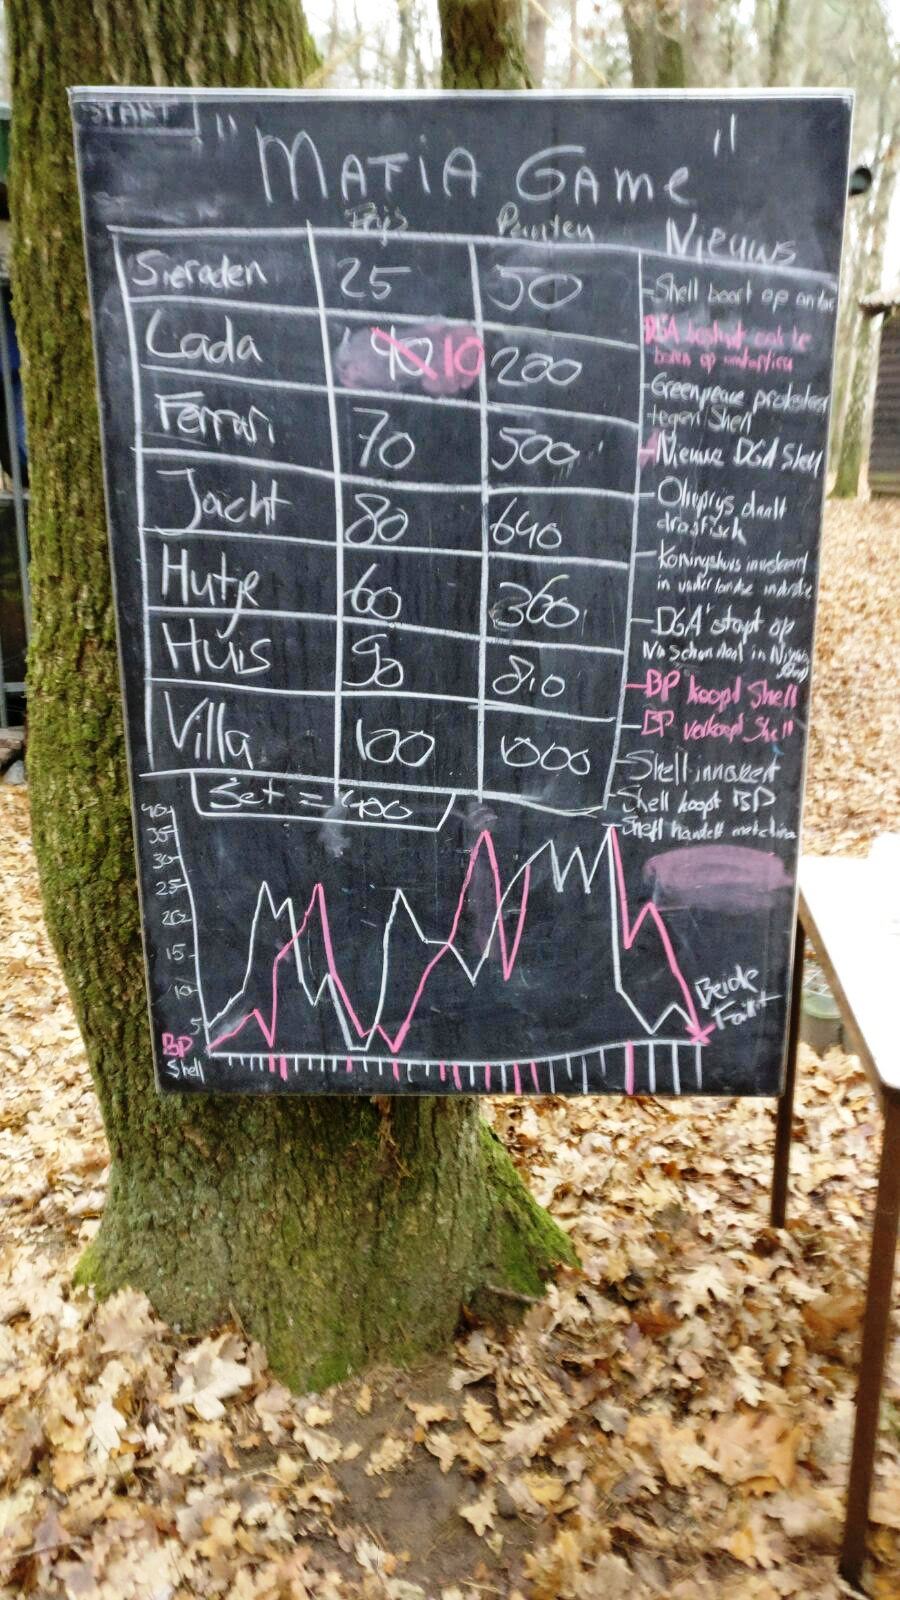 START
" MAFIA GAME "
Prijs Punten Nieuws
Sieraden 25 50
Lada 40 10 200
Ferrari 70 500
Jacht 80 640
Hutje 60 360
Huis 90 810
Villa 100 1000
Set = 400
- Shell boort op
DGA besluit ook te
boren op
- Greenpeace protesteert
tegen Shell
- Nieuwe DGA Shell
- Olieprijs daalt
drastisch
- Koningshuis investeert
in
- DGA stapt op
Na Schandaal in
- BP koopt Shell
- BP verkoopt Shell
- Shell innoveert
- Shell koopt BP
- Shell handelt met china
40
35
30
25
20
15
10
5
BP
Shell
Beide
Failliet